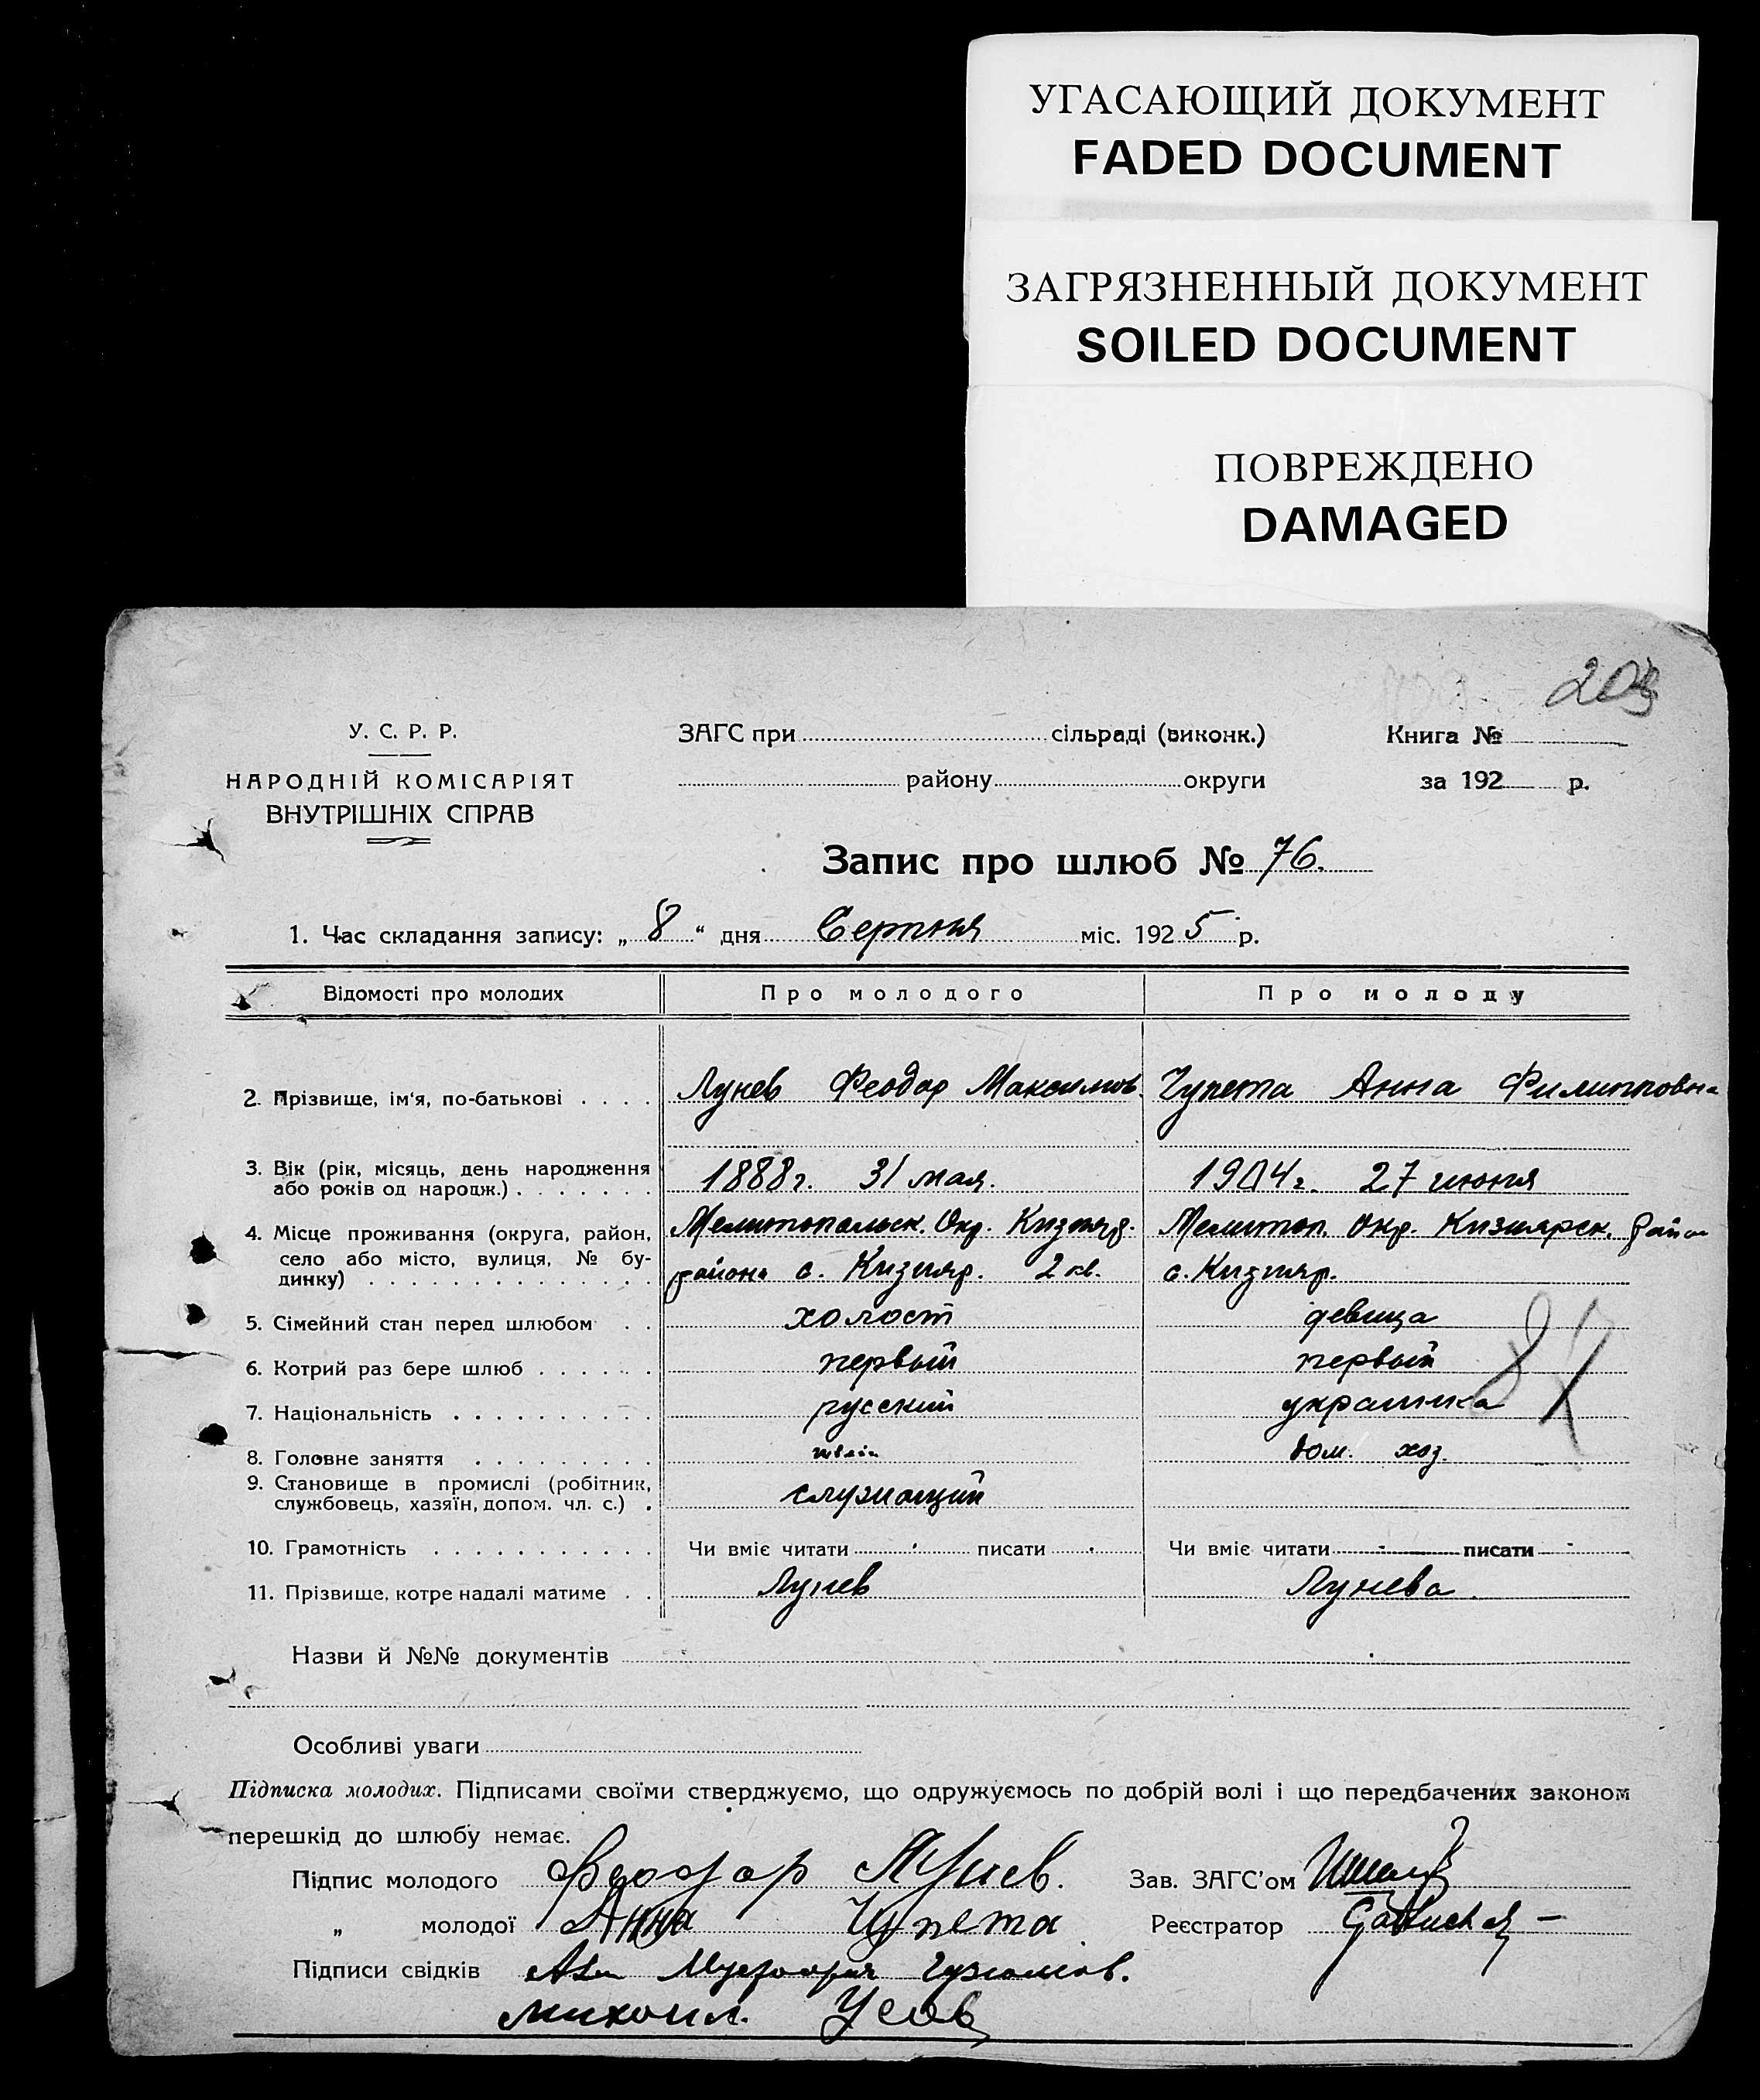 УГАСАЮЩИЙ ДОКУМЕНТ
FADED DOCUMENT
ЗАГРЯЗНЕННЫЙ ДОКУМЕНТ
SOILED DOCUMENT
ПОВРЕЖДЕНО
DAMAGED
У. С. Р. Р.
НАРОДНІЙ КОМІСАРІЯТ
ВНУТРІШНІХ СПРАВ
ЗАГС при сільраді (виконк.)
району округи
Книга №
за 192 р.
Запис про шлюб № 76.
1. Час складання запису: „ 8 “ дня Серпня міс. 1925 р.
Відомості про молодих Про молодого Про молоду
2. Прізвище, ім'я, по-батькові . . . . Лунев Феодор Максимов. Чупета Анна Филипповна
3. Вік (рік, місяць, день народження
або років од народж.) . . . . . . . 1888г. 31 мая. 1904г. 27 июня
4. Місце проживання (округа, район, Мелитопольск. Окр. Кизияр. Мелитоп. Окр. Кизиярск. район
село або місто, вулиця, № бу- района с. Кизияр. 2 кв. с. Кизияр.
динку) . . . . . . . . . . . . . .
5. Сімейний стан перед шлюбом . . холост девица
6. Котрий раз бере шлюб . . . . . . первый первый
7. Національність . . . . . . . . . . русский украинка
8. Головне заняття . . . . . . . . . дом. хоз.
9. Становище в промислі (робітник,
службовець, хазяїн, допом. чл. с.) . служащий
10. Грамотність . . . . . . . . . . . Чи вміє читати писати Чи вміє читати писати
11. Прізвище, котре надалі матиме . . Лунев Лунева
Назви й №№ документів
Особливі уваги
Підписка молодих. Підписами своїми стверджуємо, що одружуємось по добрій волі і що передбачених законом
перешкід до шлюбу немає.
Підпис молодого Феодор Лунев. Зав. ЗАГС'ом
„ молодої Анна Чупета Реєстратор
Підписи свідків
Михаил. Усов